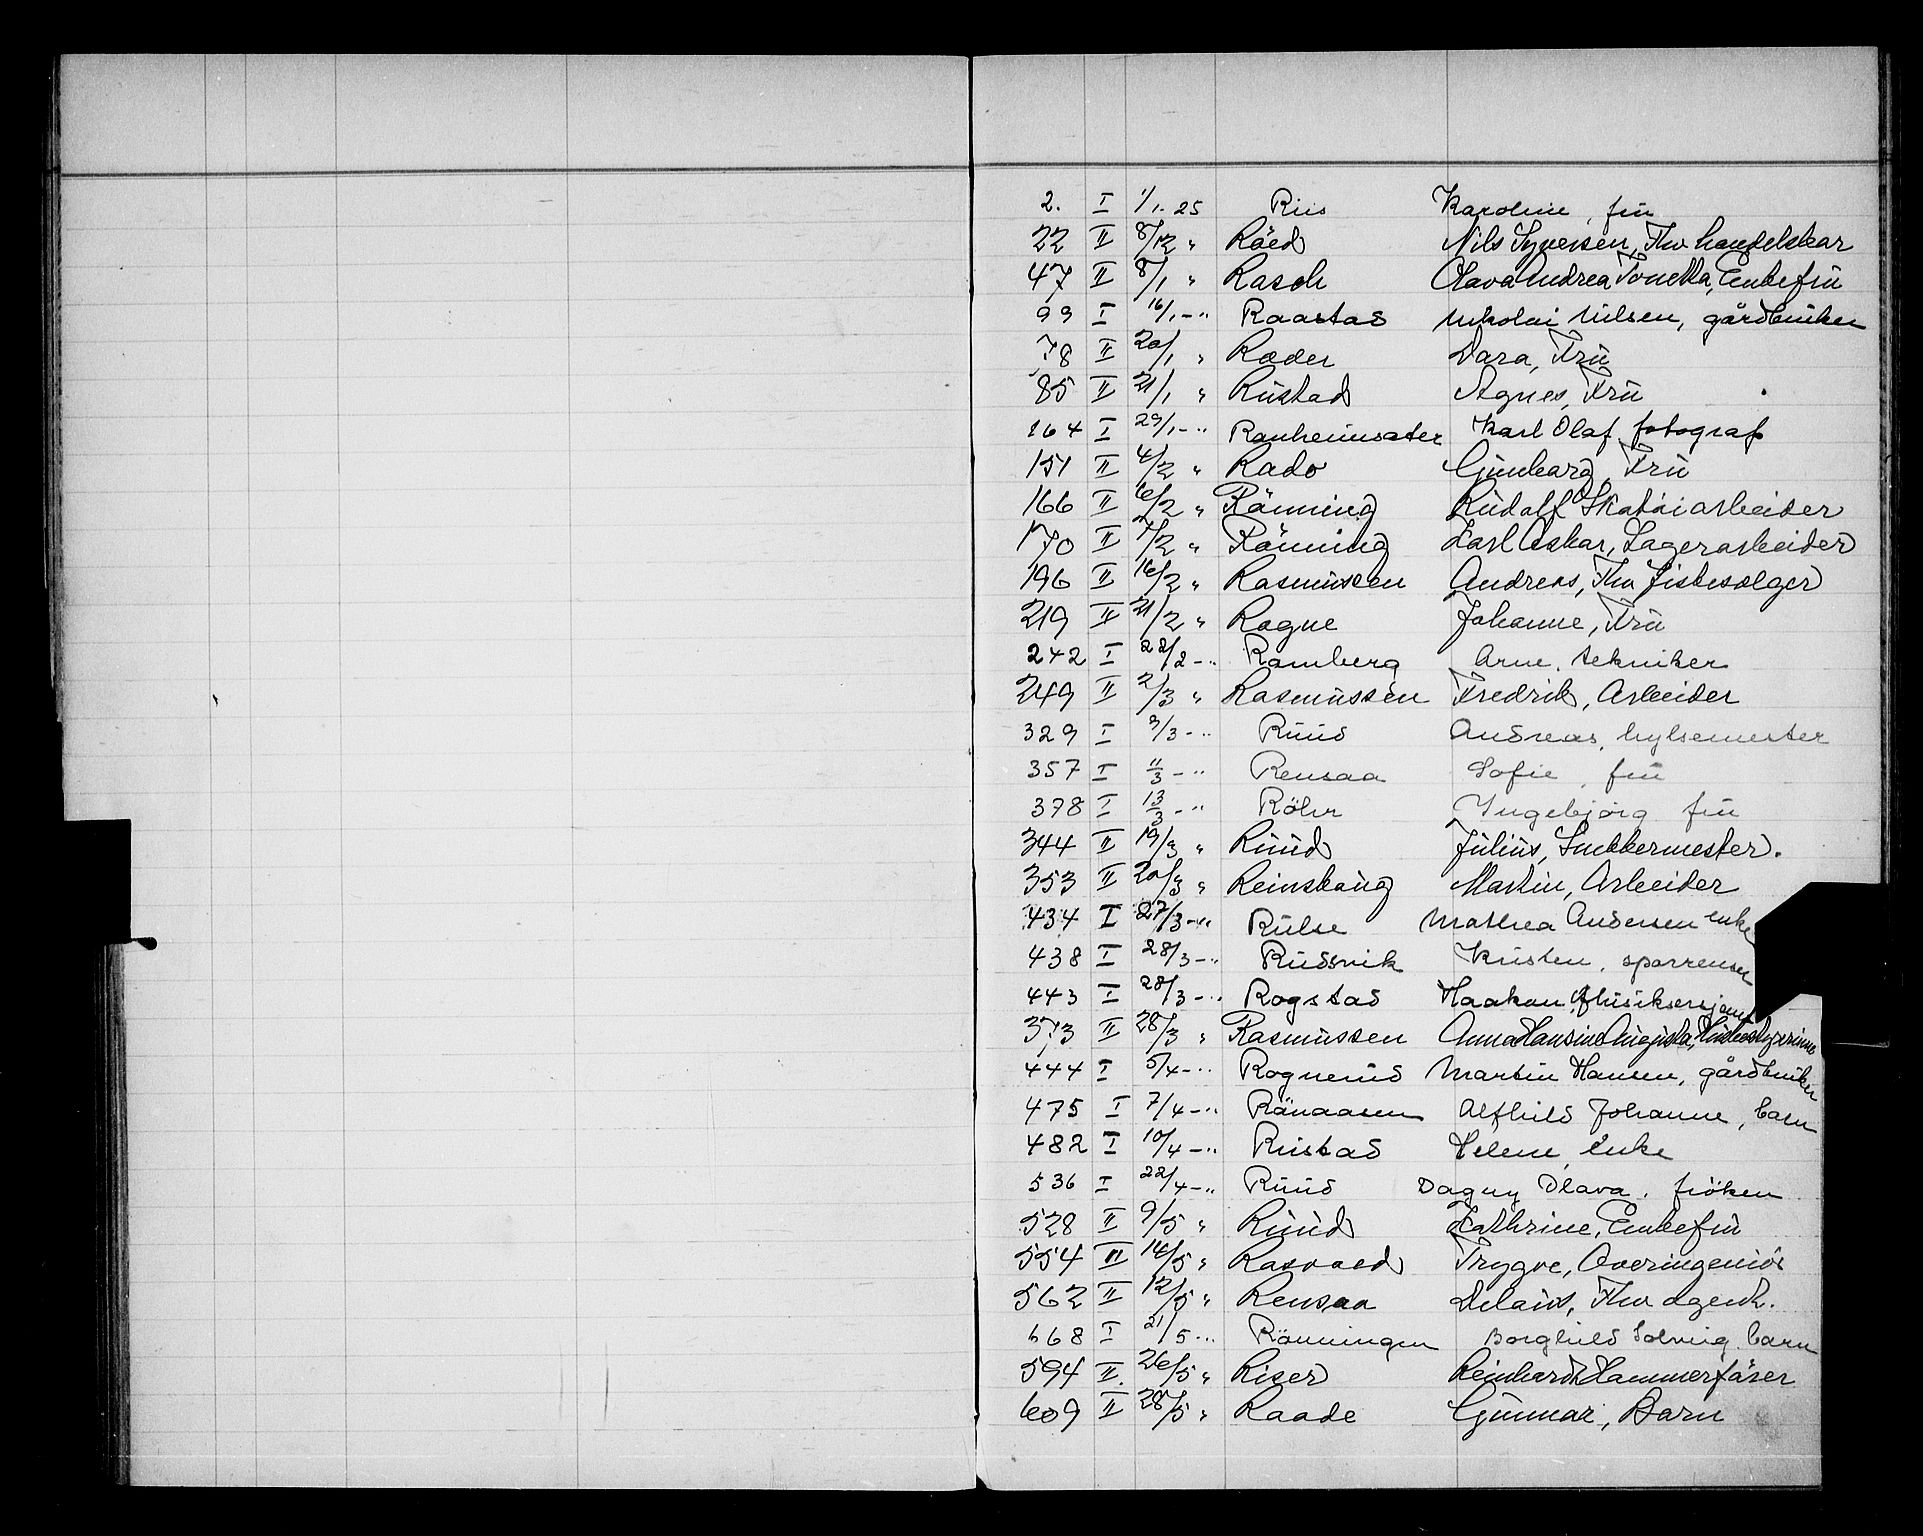 2. I 1/1. 25 Riis Karoline, frü
22 II 8/12 " Röed Nils Syversen, Fhv handelskar
47 II 8/1 " Rasch Olava Andrea Tonetta, Enkefrü
99 I 16/1 -" Raastad Nikolai Nilsen, gårdbrüker
78 II 20/1 " Ræder Dara, Frü
85 II 21/1 " Rüstad Agnes, Frü
164 I 29/1 -" Ranheimsæter Karl Olaf fotograf
151 II 4/2 " Rado Günborg, Frü
166 II 6/2 " Rönning Rüdolf Skotöiarbeider
170 II 7/2 " Rönning Karl Oskar, Lagerarbeider
196 II 16/2 " Rasmüssen Andreas, Fhv fiskesælger
219 II 21/2 " Rogne Johanne, Frü
242 I 22/2 -" Ramberg Arne, tekniker
249 II 2/3 " Rasmüssen Fredrik, Arbeider
329 I 9/3 -" Rüüd Andreas, hylsemester
357 I 11/3 -" Rensaa Sofie, frü
378 I 13/3 -" Röhr Ingebjörg frü
344 II 19/3 " Rüüd Jülius, Snekkermester.
353 II 20/3 " Reinskaüg Martin, Arbeider
434 I 27/3 -" Rülse Mathea Andersen enke
438 I 28/3 -" Rüdsvik Kristen, sporrenser
443 I 28/3 -" Rogstad Haakon,
373 II 28/3 " Rasmüssen Anna Hansine Aügüsta, Hüsbestyrerinne
444 I 5/4 -" Rognerüd Martin Hansen, gårdbrüker
475 I 7/4 -" Rönaasen Alfhild Johanne, barn
482 I 10/4 -" Rüstad Helene, enke
536 I 22/4 -" Rüüd Dagny Olava, fröken
528 II 9/5 " Rüüd Kathrine, Enkefrü
554 II 14/5 " Rasvaed Trygve, Overingeniör
562 II 12/5 " Rensaa Fhv agent.
668 I 21/5 -" Rönningen Borghild Solveig barn
594 II. 26/5 " Riser Reinhardt Hammerfører
609 II 28/5 " Raade Günnar, Barn